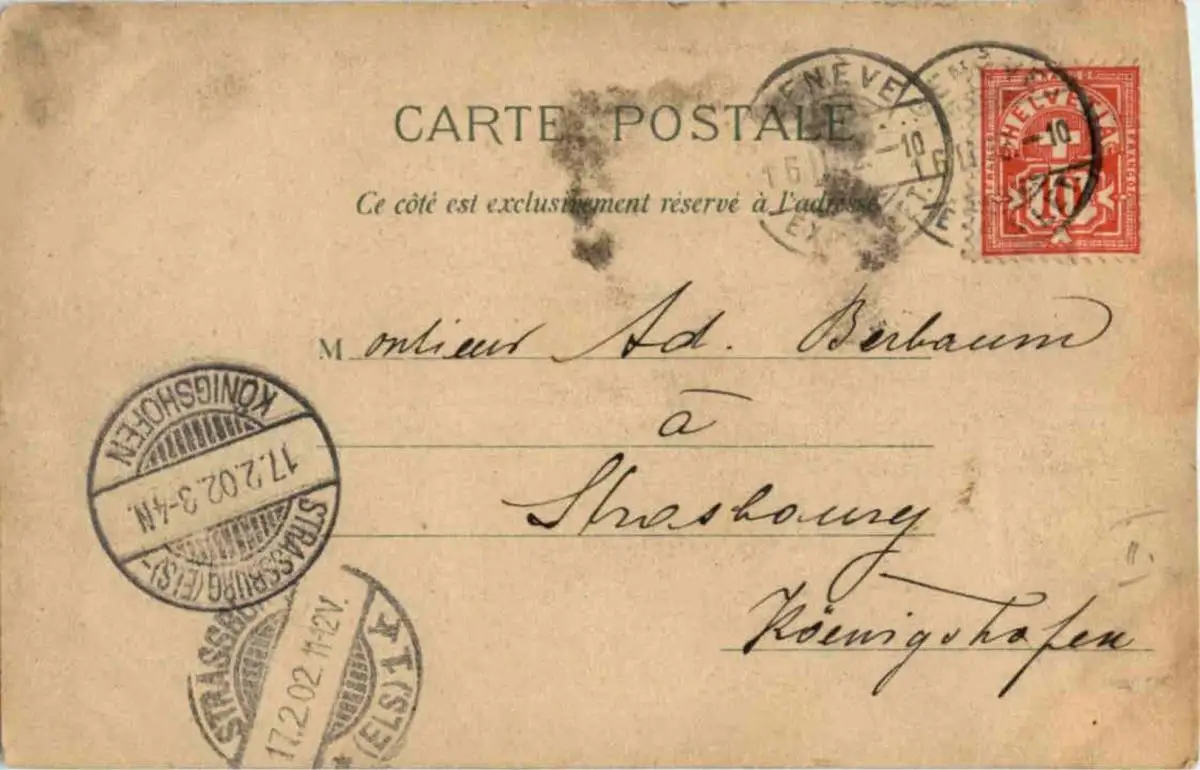 CARTE POSTALE
Ce côté est exclusivement réservé à l'adresse
GENÈVE
16 II –10
HELVETIA
10
Monsieur Ad. Berbaum
à
Strasbourg
Köenigshofen
STRASSBURG (ELS)-
17.2.02.3-4N.
KÖNIGSHOFEN
STRASSBURG
17.2.02.11-12V.
* (ELS.) 1 k